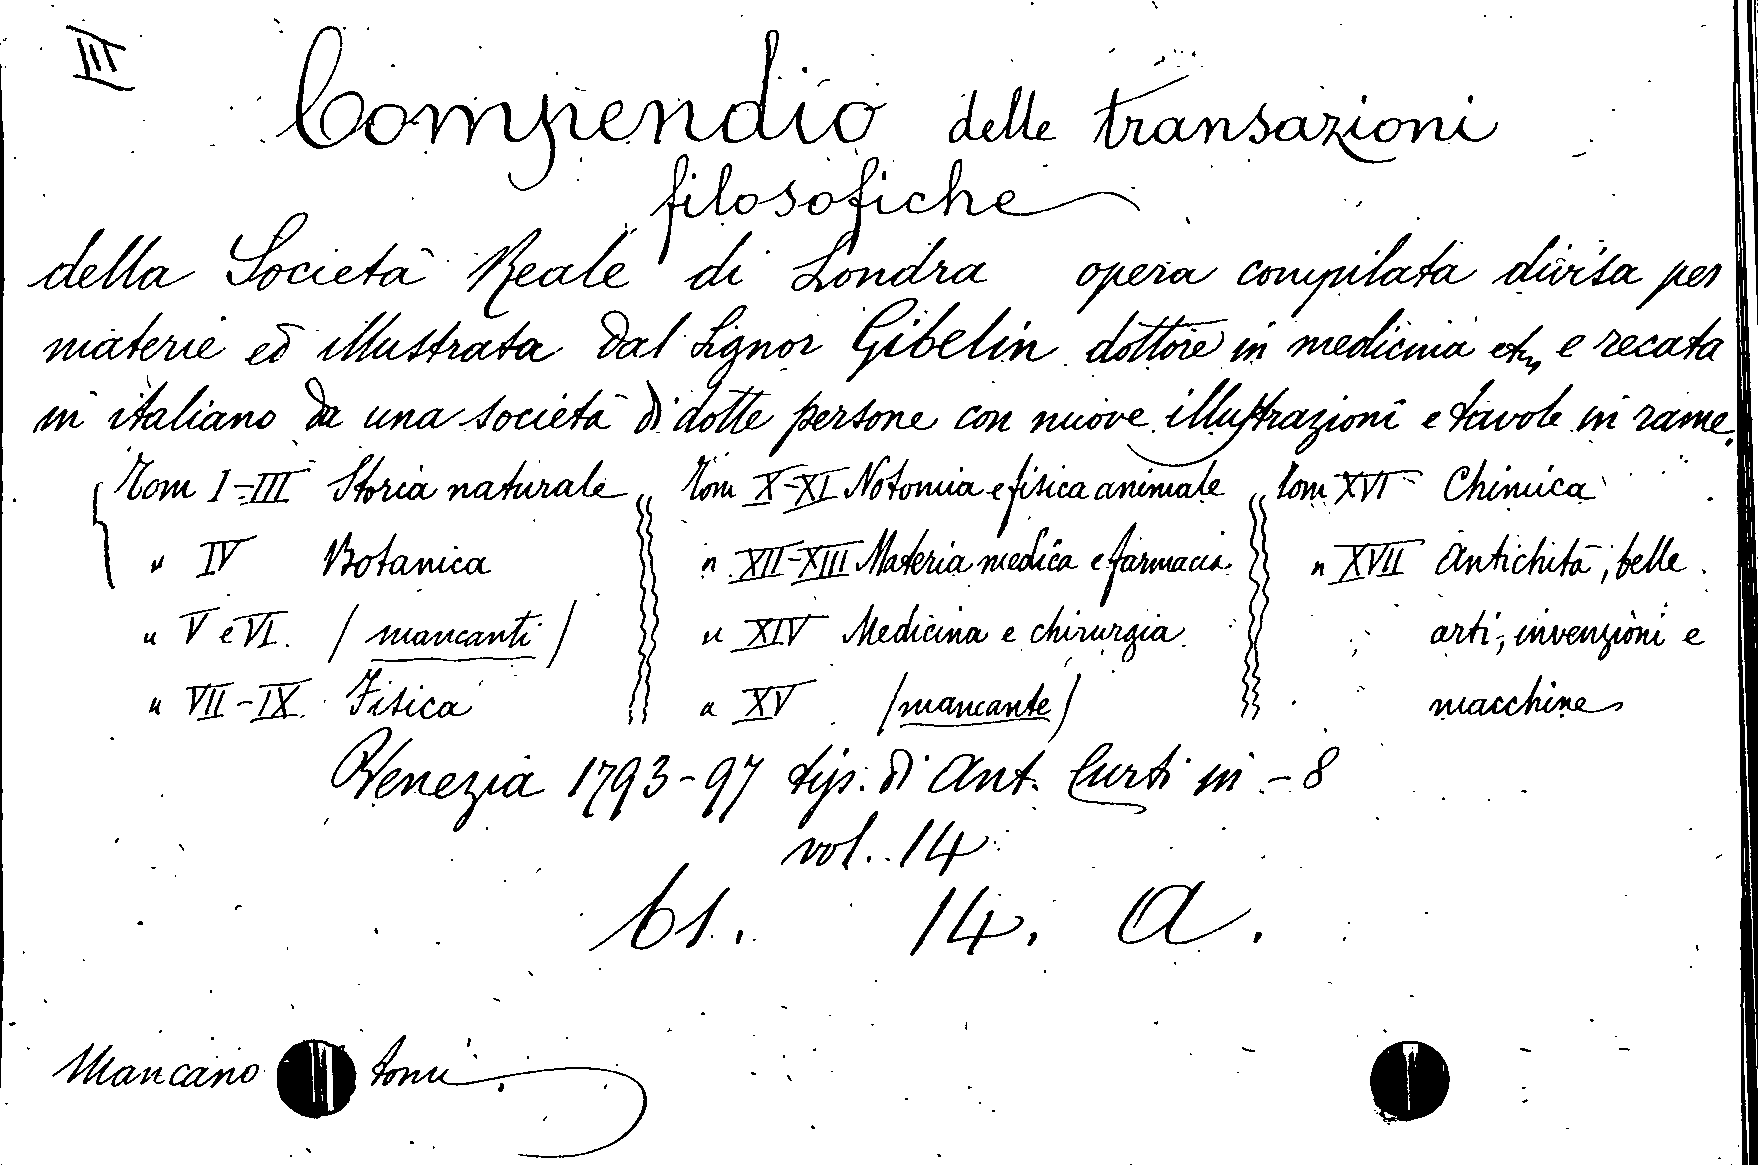 III
Compendio delle transazioni
filosofiche
della Società Reale di Londra opera compilata divisa per
materie ed illustrata dal Signor Gibelin dottore in medicina etc, e recata
in italiano da una società di dotte persone con nuove illustrazioni e tavole in rame.
Tom I-III Storia naturale
" IV Botanica
" V e VI. / mancanti /
" VII-IX. Fisica
Tom X-XI Notomia e fisica animale
" XII-XIII Materia medica e farmacia.
" XIV Medicina e chirurgia.
" XV / mancante /
tom XVI Chimica
" XVII Antichità, belle
arti, invenzioni e
macchine
Venezia 1793-97 tip. di Ant. Curti in-8
vol. 14
61. 14. A.
Mancano tomi.